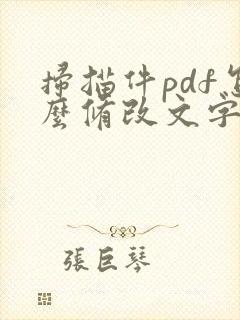 掃描件pdf怎
麽脩改文字
張巨琴